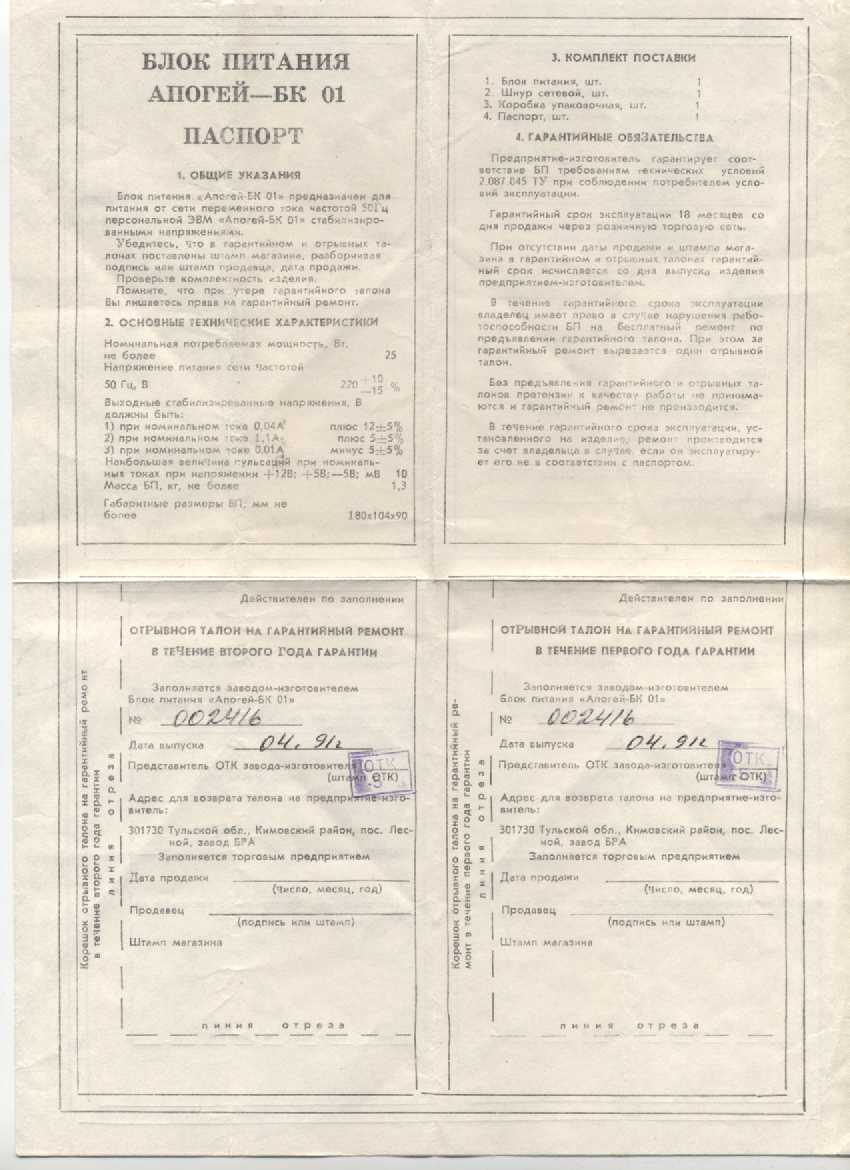 БЛОК ПИТАНИЯ
АПОГЕЙ—БК 01
ПАСПОРТ
1. ОБЩИЕ УКАЗАНИЯ
Блок питания «Апогей-БК 01» предназначен для
питания от сети переменного тока частотой 50Гц
персональной ЭВМ «Апогей-БК 01» стабилизиро-
ванными напряжениями.
Убедитесь, что в гарантийном и отрывных та-
лонах поставлены штамп магазина, разборчивая
подпись или штамп продавца, дата продажи.
Проверьте комплектность изделия.
Помните, что при утере гарантийного талона
Вы лишаетесь права на гарантийный ремонт.
2. ОСНОВНЫЕ ТЕХНИЧЕСКИЕ ХАРАКТЕРИСТИКИ
Номинальная потребляемая мощность, Вт,
не более 25
Напряжение питания сети частотой
50 Гц, В 220 +10 —15 %
Выходные стабилизированные напряжения, В
должны быть:
1) при номинальном токе 0,04А плюс 12±5%
2) при номинальном токе 1,1А плюс 5±5%
3) при номинальном токе 0,01А минус 5±5%
Наибольшая величина пульсаций при номиналь-
ных токах при напряжении +12В; +5В; —5В; мВ 10
Масса БП, кг, не более 1,3
Габаритные размеры БП, мм не
более 180х104х90
3. КОМПЛЕКТ ПОСТАВКИ
1. Блок питания, шт. 1
2. Шнур сетевой, шт. 1
3. Коробка упаковочная, шт. 1
4. Паспорт, шт. 1
4. ГАРАНТИЙНЫЕ ОБЯЗАТЕЛЬСТВА
Предприятие-изготовитель гарантирует соот-
ветствие БП требованиям технических условий
2.087.045 ТУ при соблюдении потребителем усло-
вий эксплуатации.
Гарантийный срок эксплуатации 18 месяцев со
дня продажи через розничную торговую сеть.
При отсутствии даты продажи и штампа мага-
зина в гарантийном и отрывных талонах гарантий-
ный срок исчисляется со дня выпуска изделия
предприятием-изготовителем.
В течение гарантийного срока эксплуатации
владелец имеет право в случае нарушения рабо-
тоспособности БП на бесплатный ремонт по
предъявлении гарантийного талона. При этом за
гарантийный ремонт вырезается один отрывной
талон.
Без предъявления гарантийного и отрывных та-
лонов претензии к качеству работы не принима-
ются и гарантийный ремонт не производится.
В течение гарантийного срока эксплуатации, ус-
тановленного на изделие, ремонт производится
за счет владельца в случае, если он эксплуатиру-
ет его не в соответствии с паспортом.
Корешок отрывного талона на гарантийный ремонт
в течение второго года гарантии
линия отреза
Действителен по заполнении
ОТРЫВНОЙ ТАЛОН НА ГАРАНТИЙНЫЙ РЕМОНТ
В ТЕЧЕНИЕ ВТОРОГО ГОДА ГАРАНТИИ
Заполняется заводом-изготовителем
Блок питания «Апогей-БК 01»
№ 002416
Дата выпуска 04.91г
Представитель ОТК завода-изготовителя
(штамп ОТК)
ОТК
Адрес для возврата талона на предприятие-изго-
витель:
301730 Тульской обл., Кимовский район, пос. Лес-
ной, завод БРА
Заполняется торговым предприятием
Дата продажи
(Число, месяц, год)
Продавец
(подпись или штамп)
Штамп магазина
линия отреза
Корешок отрывного талона на гарантийный ре-
монт в течение первого года гарантии
линия отреза
Действителен по заполнении
ОТРЫВНОЙ ТАЛОН НА ГАРАНТИЙНЫЙ РЕМОНТ
В ТЕЧЕНИЕ ПЕРВОГО ГОДА ГАРАНТИИ
Заполняется заводом-изготовителем
Блок питания «Апогей-БК 01»
№ 002416
Дата выпуска 04.91г
Представитель ОТК завода-изготовителя
(штамп ОТК)
ОТК
Адрес для возврата талона на предприятие-изго-
витель:
301730 Тульской обл., Кимовский район, пос. Лес-
ной, завод БРА
Заполняется торговым предприятием
Дата продажи
(Число, месяц, год)
Продавец
(подпись или штамп)
Штамп магазина
линия отреза